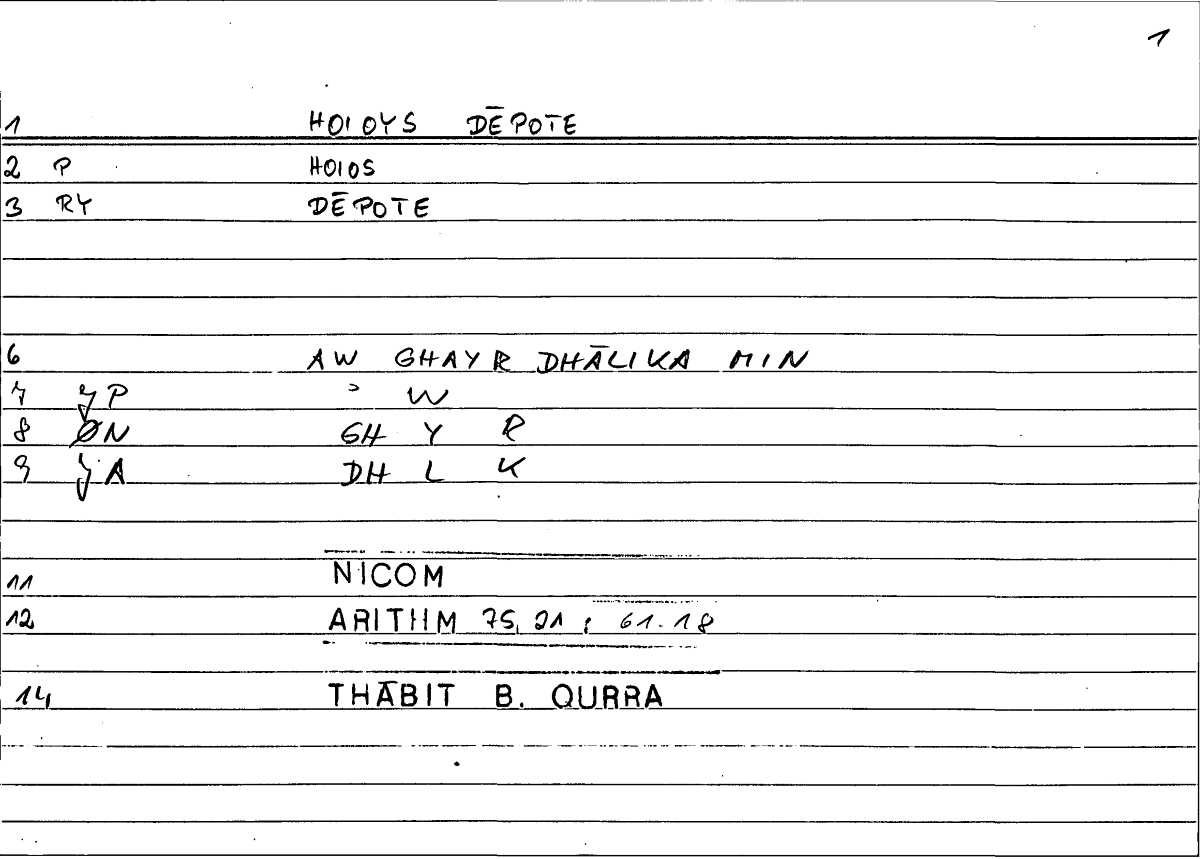 1
1 HOIOYS DĒPOTE
2 P HOIOS
3 RY DĒPOTE
6 AW GHAYR DHĀLIKA MIN
7 P ʾ W
8 ØN GH Y R
9 A DH L K
11 NICOM
12 ARITHM 75, 21 ; 61.18
14 THĀBIT B. QURRA